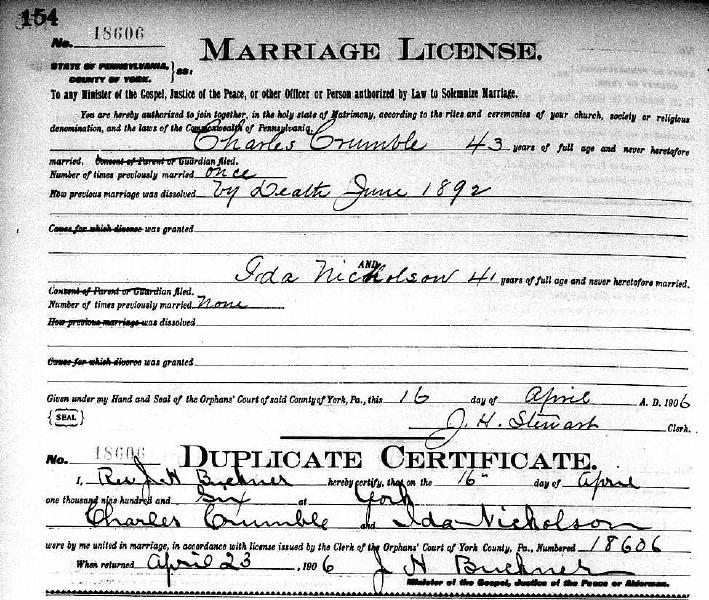 154
No. 18606
MARRIAGE LICENSE.
STATE OF PENNSYLVANIA,
COUNTY OF YORK. } SS:
To any Minister of the Gospel, Justice of the Peace, or other Officer or Person authorized by Law to Solemnize Marriage.
You are hereby authorized to join together, in the holy state of Matrimony, according to the rites and ceremonies of your church, society or religious
denomination, and the laws of the Commonwealth of Pennsylvania,
Charles Crumble 43 years of full age and never heretofore
married. Consent of Parent or Guardian filed.
Number of times previously married once
How previous marriage was dissolved by Death June 1892
Cause for which divorce was granted
AND
Ida Nicholson 41 years of full age and never heretofore married.
Consent of Parent or Guardian filed.
Number of times previously married None
How previous marriage was dissolved
Cause for which divorce was granted
Given under my Hand and Seal of the Orphans' Court of said County of York, Pa., this 16 day of April A. D. 1906
{SEAL} J. H. Stewart Clerk.
No. 18606 DUPLICATE CERTIFICATE.
I, Rev J H Buckner hereby certify, that on the 16" day of April
one thousand nine hundred and Six at York
Charles Crumble and Ida Nicholson
were by me united in marriage, in accordance with license issued by the Clerk of the Orphans' Court of York County, Pa., Numbered 18606
When returned April 23, 1906 J H Buckner
Minister of the Gospel, Justice of the Peace or Alderman.